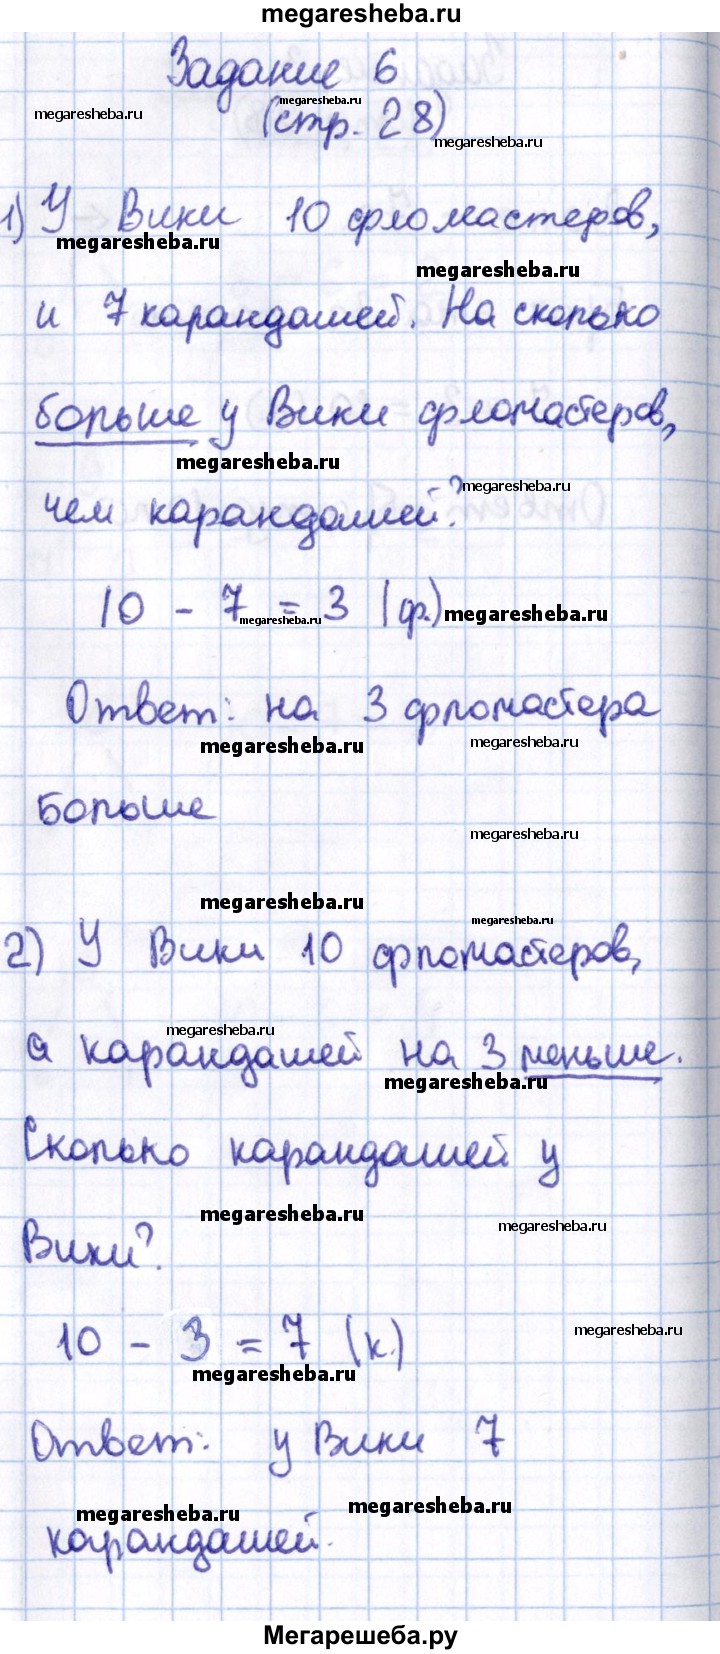 megaresheba.ru
Задание 6
megaresheba.ru
megaresheba.ru
(стр. 28)
megaresheba.ru
1) У Вики 10 фломастеров,
megaresheba.ru
megaresheba.ru
и 7 карандашей. На сколько
больше у Вики фломастеров,
megaresheba.ru
megaresheba.ru
чем карандашей?
10 - 7 = 3 (ф.)
megaresheba.ru
megaresheba.ru
Ответ: на 3 фломастера
megaresheba.ru
megaresheba.ru
больше
megaresheba.ru
megaresheba.ru
megaresheba.ru
2) У Вики 10 фломастеров,
megaresheba.ru
а карандашей на 3 меньше.
megaresheba.ru
Сколько карандашей у
megaresheba.ru
megaresheba.ru
Вики?
megaresheba.ru
10 - 3 = 7 (к.)
megaresheba.ru
Ответ: у Вики 7
megaresheba.ru
megaresheba.ru
карандашей.
Мегарешеба.ру